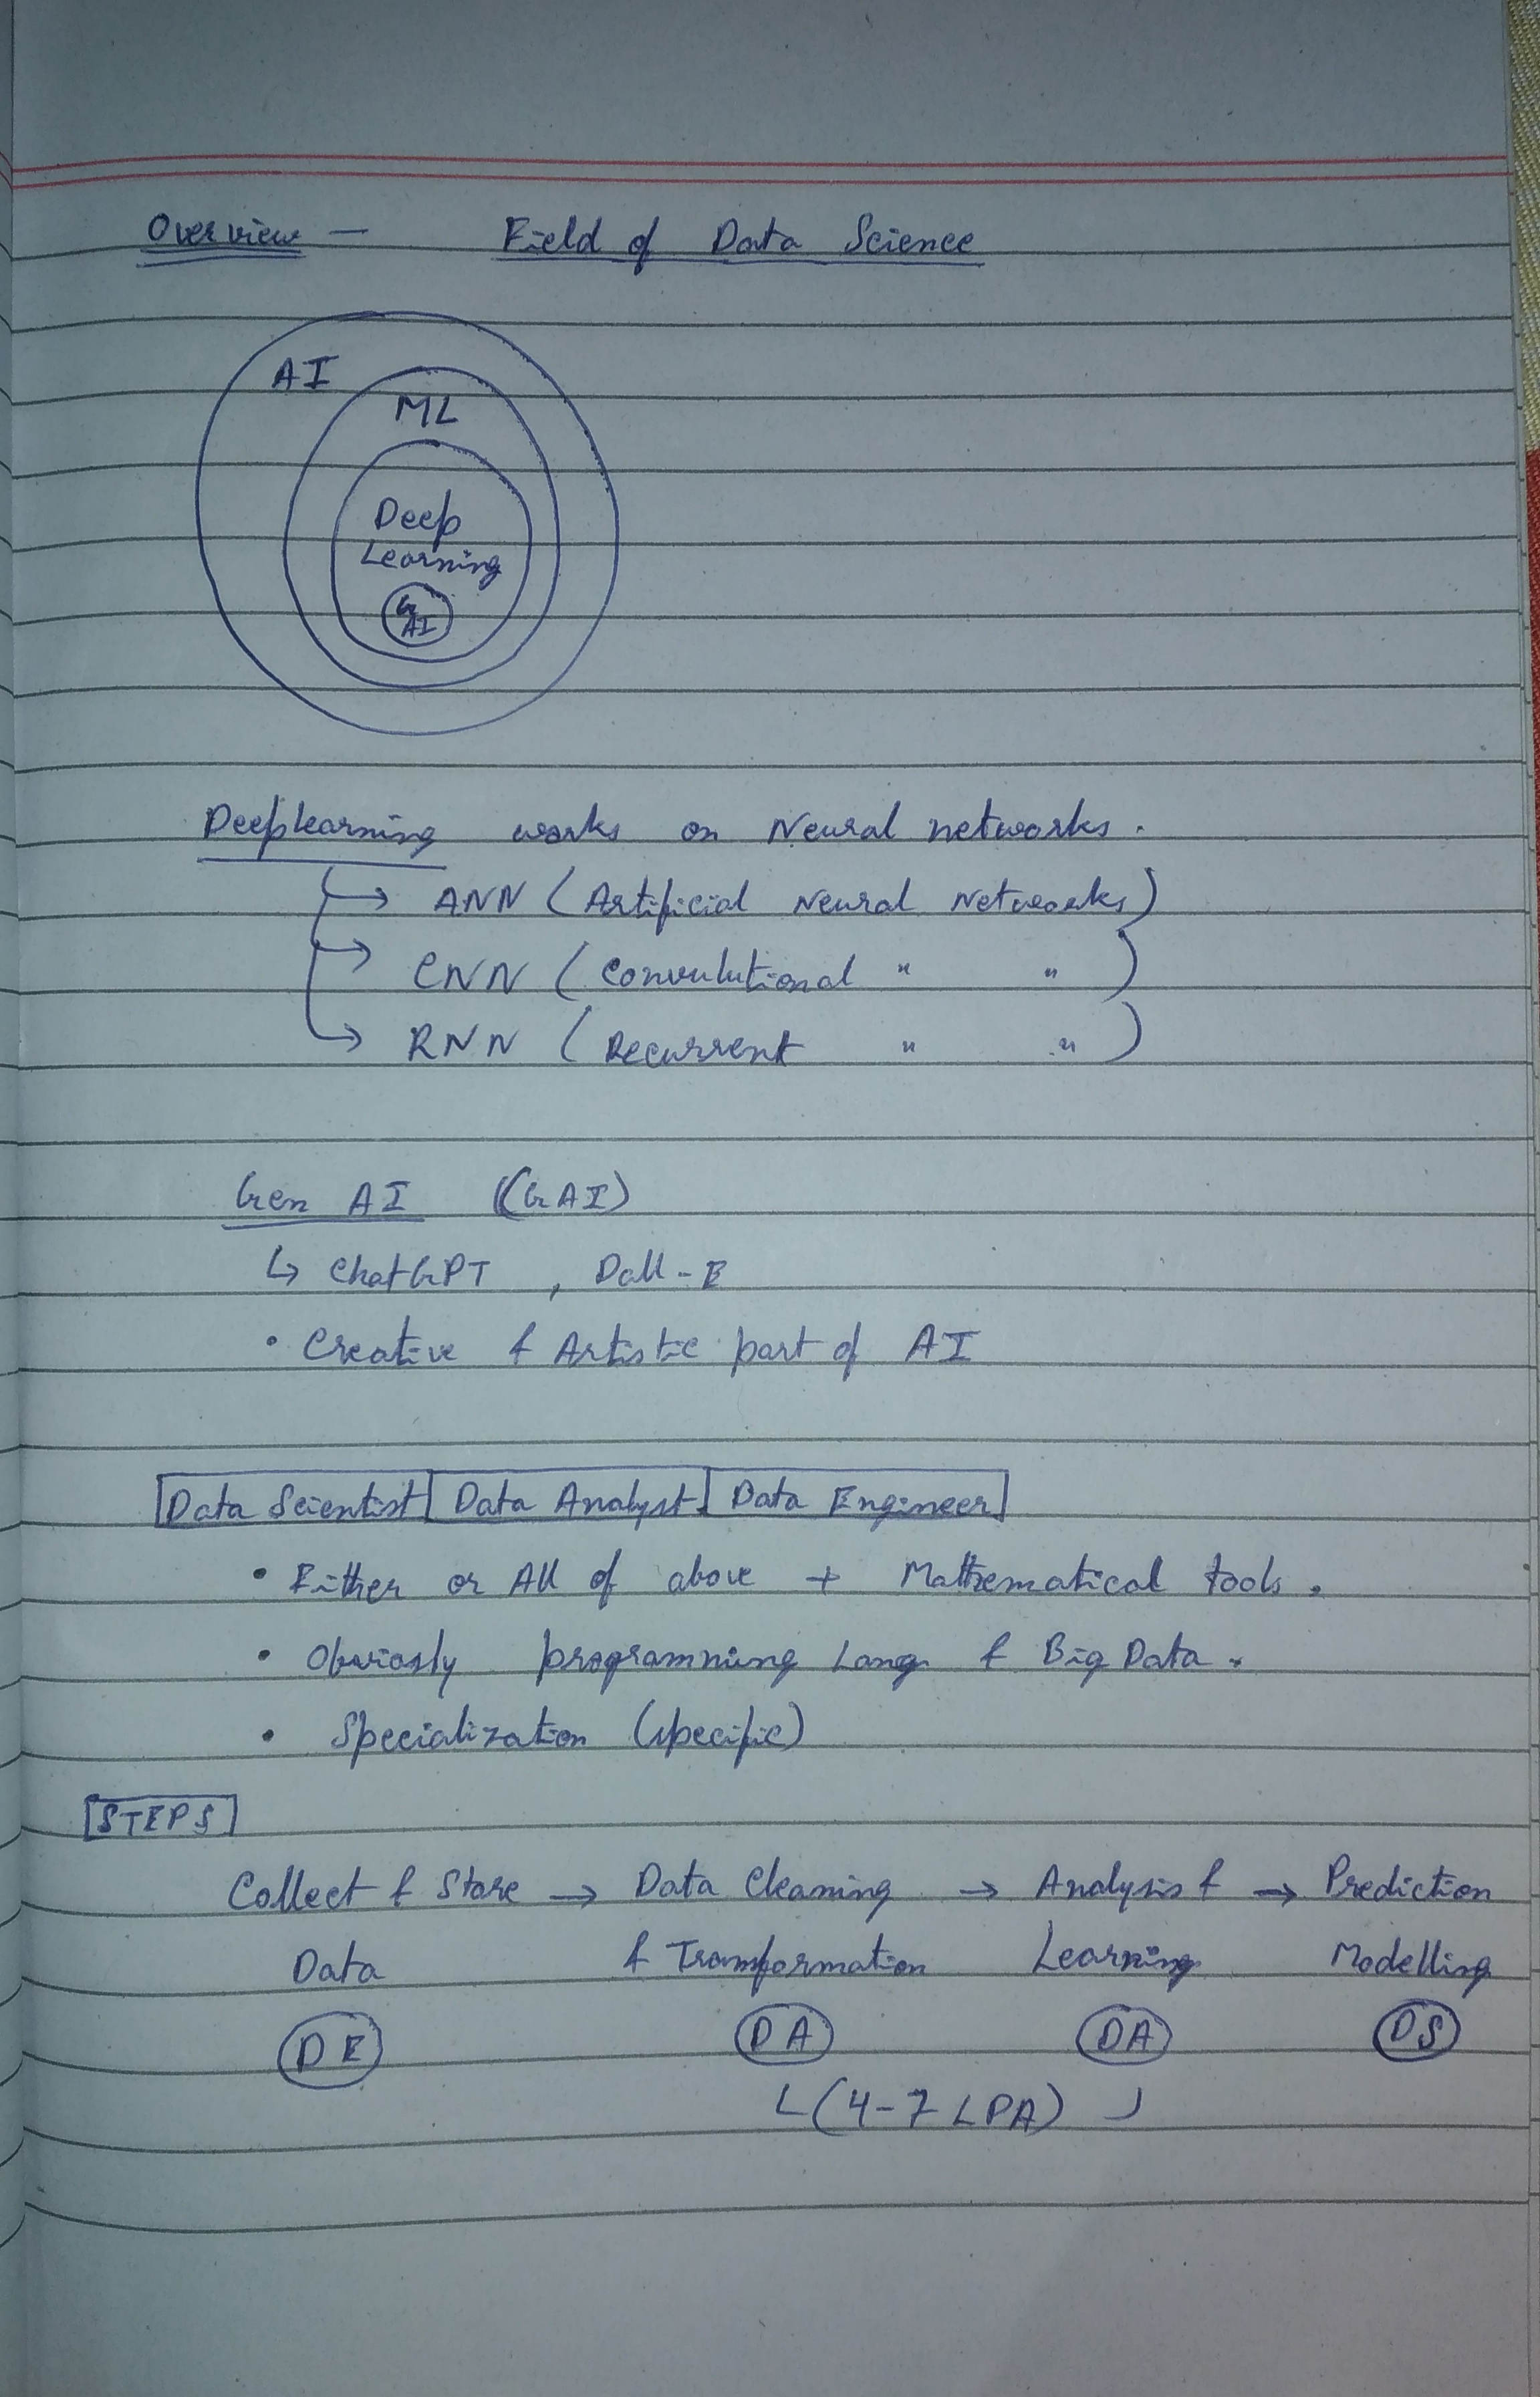 Overview — Field of Data Science
AI
ML
Deep
Learning
G
AI
Deeplearning works on Neural networks.
→ ANN (Artificial Neural Networks)
→ CNN (Convulutional " ")
→ RNN (Recurrent " ")
Gen AI (GAI)
↳ ChatGPT , Dall-E
• Creative & Artistic part of AI
Data Scientist | Data Analyst | Data Engineer
• Either or All of above + Mathematical tools.
• Obviosly programming Lang. & Big Data.
• Specialization (specific)
STEPS
Collect & Store → Data Cleaning → Analysis & → Prediction
Data & Transformation Learning Modelling
DE DA DA DS
(4-7 LPA)